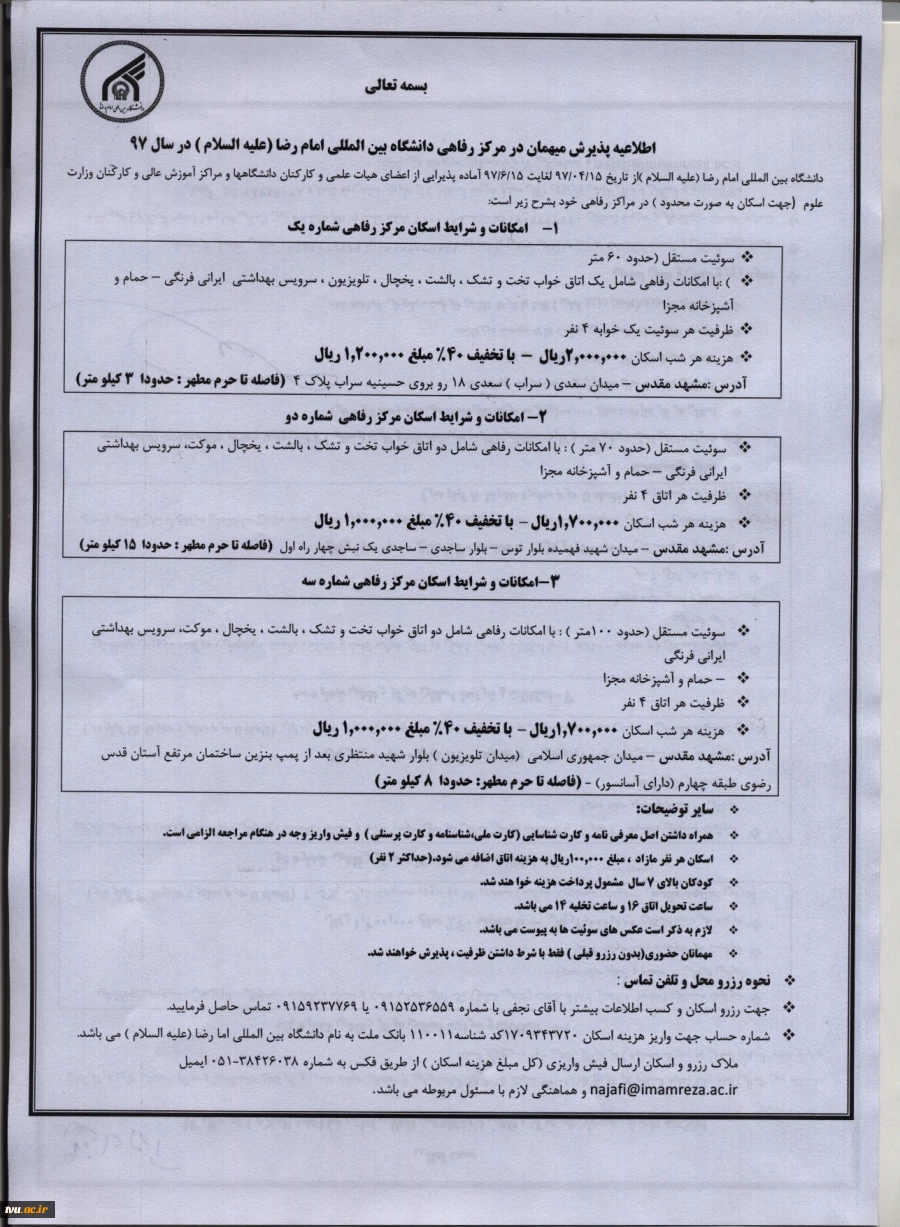 بسمه تعالی
دانشگاه بین المللی امام رضا
اطلاعیه پذیرش میهمان در مرکز رفاهی دانشگاه بین المللی امام رضا (علیه السلام ) در سال ۹۷
دانشگاه بین المللی امام رضا (علیه السلام )از تاریخ ۹۷/۰۴/۱۵ لغایت ۹۷/۶/۱۵ آماده پذیرایی از اعضای هیات علمی و کارکنان دانشگاهها و مراکز آموزش عالی و کارکنان وزارت
علوم (جهت اسکان به صورت محدود ) در مراکز رفاهی خود بشرح زیر است:
۱- امکانات و شرایط اسکان مرکز رفاهی شماره یک
❖ سوئیت مستقل (حدود ۶۰ متر
❖ ) :با امکانات رفاهی شامل یک اتاق خواب تخت و تشک ، بالشت ، یخچال ، تلویزیون ، سرویس بهداشتی ایرانی فرنگی – حمام و
آشپزخانه مجزا
❖ ظرفیت هر سوئیت یک خوابه ۴ نفر
❖ هزینه هر شب اسکان ۲,۰۰۰,۰۰۰ریال – با تخفیف ۴۰٪ مبلغ ۱,۲۰۰,۰۰۰ ریال
آدرس :مشهد مقدس – میدان سعدی ( سراب ) سعدی ۱۸ رو بروی حسینیه سراب پلاک ۴ (فاصله تا حرم مطهر : حدودا ۳ کیلو متر)
۲- امکانات و شرایط اسکان مرکز رفاهی شماره دو
❖ سوئیت مستقل (حدود ۷۰ متر ) : با امکانات رفاهی شامل دو اتاق خواب تخت و تشک ، بالشت ، یخچال ، موکت، سرویس بهداشتی
ایرانی فرنگی – حمام و آشپزخانه مجزا
❖ ظرفیت هر اتاق ۴ نفر
❖ هزینه هر شب اسکان ۱,۷۰۰,۰۰۰ریال – با تخفیف ۴۰٪ مبلغ ۱,۰۰۰,۰۰۰ ریال
آدرس :مشهد مقدس – میدان شهید فهمیده بلوار توس – بلوار ساجدی – ساجدی یک نبش چهار راه اول (فاصله تا حرم مطهر : حدودا ۱۵ کیلو متر)
۳-امکانات و شرایط اسکان مرکز رفاهی شماره سه
❖ سوئیت مستقل (حدود ۱۰۰متر ) : با امکانات رفاهی شامل دو اتاق خواب تخت و تشک ، بالشت ، یخچال ، موکت، سرویس بهداشتی
ایرانی فرنگی
❖ – حمام و آشپزخانه مجزا
❖ ظرفیت هر اتاق ۴ نفر
❖ هزینه هر شب اسکان ۱,۷۰۰,۰۰۰ریال – با تخفیف ۴۰٪ مبلغ ۱,۰۰۰,۰۰۰ ریال
آدرس :مشهد مقدس – میدان جمهوری اسلامی (میدان تلویزیون ) بلوار شهید منتظری بعد از پمپ بنزین ساختمان مرتفع آستان قدس
رضوی طبقه چهارم (دارای آسانسور) - (فاصله تا حرم مطهر: حدودا ۸ کیلو متر)
❖ سایر توضیحات:
❖ همراه داشتن اصل معرفی نامه و کارت شناسایی (کارت ملی،شناسنامه و کارت پرسنلی ) و فیش واریز وجه در هنگام مراجعه الزامی است.
❖ اسکان هر نفر مازاد ، مبلغ ۱۰۰,۰۰۰ریال به هزینه اتاق اضافه می شود.(حداکثر ۲ نفر)
❖ کودکان بالای ۷ سال مشمول پرداخت هزینه خوا هند شد.
❖ ساعت تحویل اتاق ۱۶ و ساعت تخلیه ۱۴ می باشد.
❖ لازم به ذکر است عکس های سوئیت ها به پیوست می باشد.
❖ مهمانان حضوری(بدون رزرو قبلی ) فقط با شرط داشتن ظرفیت ، پذیرش خواهند شد.
❖ نحوه رزرو محل و تلفن تماس :
❖ جهت رزرو اسکان و کسب اطلاعات بیشتر با آقای نجفی با شماره ۰۹۱۵۲۵۳۶۵۵۹ یا ۰۹۱۵۹۲۳۷۷۶۹ تماس حاصل فرمایید.
❖ شماره حساب جهت واریز هزینه اسکان ۱۷۰۹۳۴۳۷۲۰کد شناسه۱۱۰۰۱۱ بانک ملت به نام دانشگاه بین المللی اما رضا (علیه السلام ) می باشد.
ملاک رزرو و اسکان ارسال فیش واریزی (کل مبلغ هزینه اسکان ) از طریق فکس به شماره ۳۸۴۲۶۰۳۸-۰۵۱ ایمیل
najafi@imamreza.ac.ir و هماهنگی لازم با مسئول مربوطه می باشد.
tvu.ac.ir